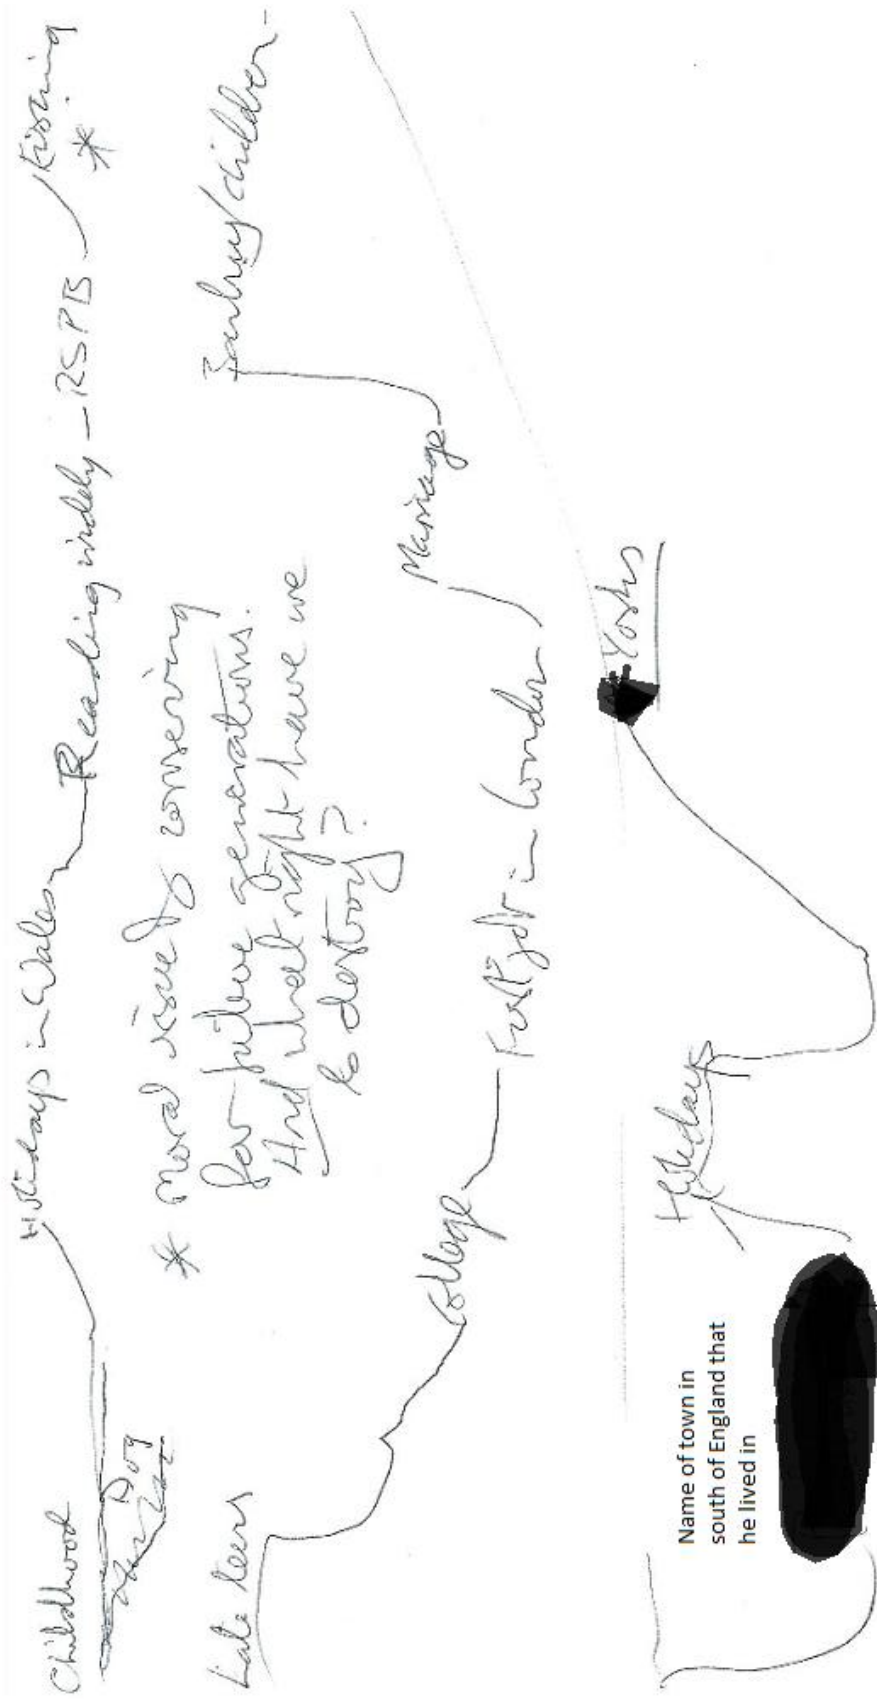 Childhood Holidays in Wales Reading widely - RSPB
Dog
* Moral issue of conserving
for future generations.
And what right have we
to destroy?
Late teens College First job in London Marriage /children-
Holidays Yorks
Name of town in
south of England that
he lived in